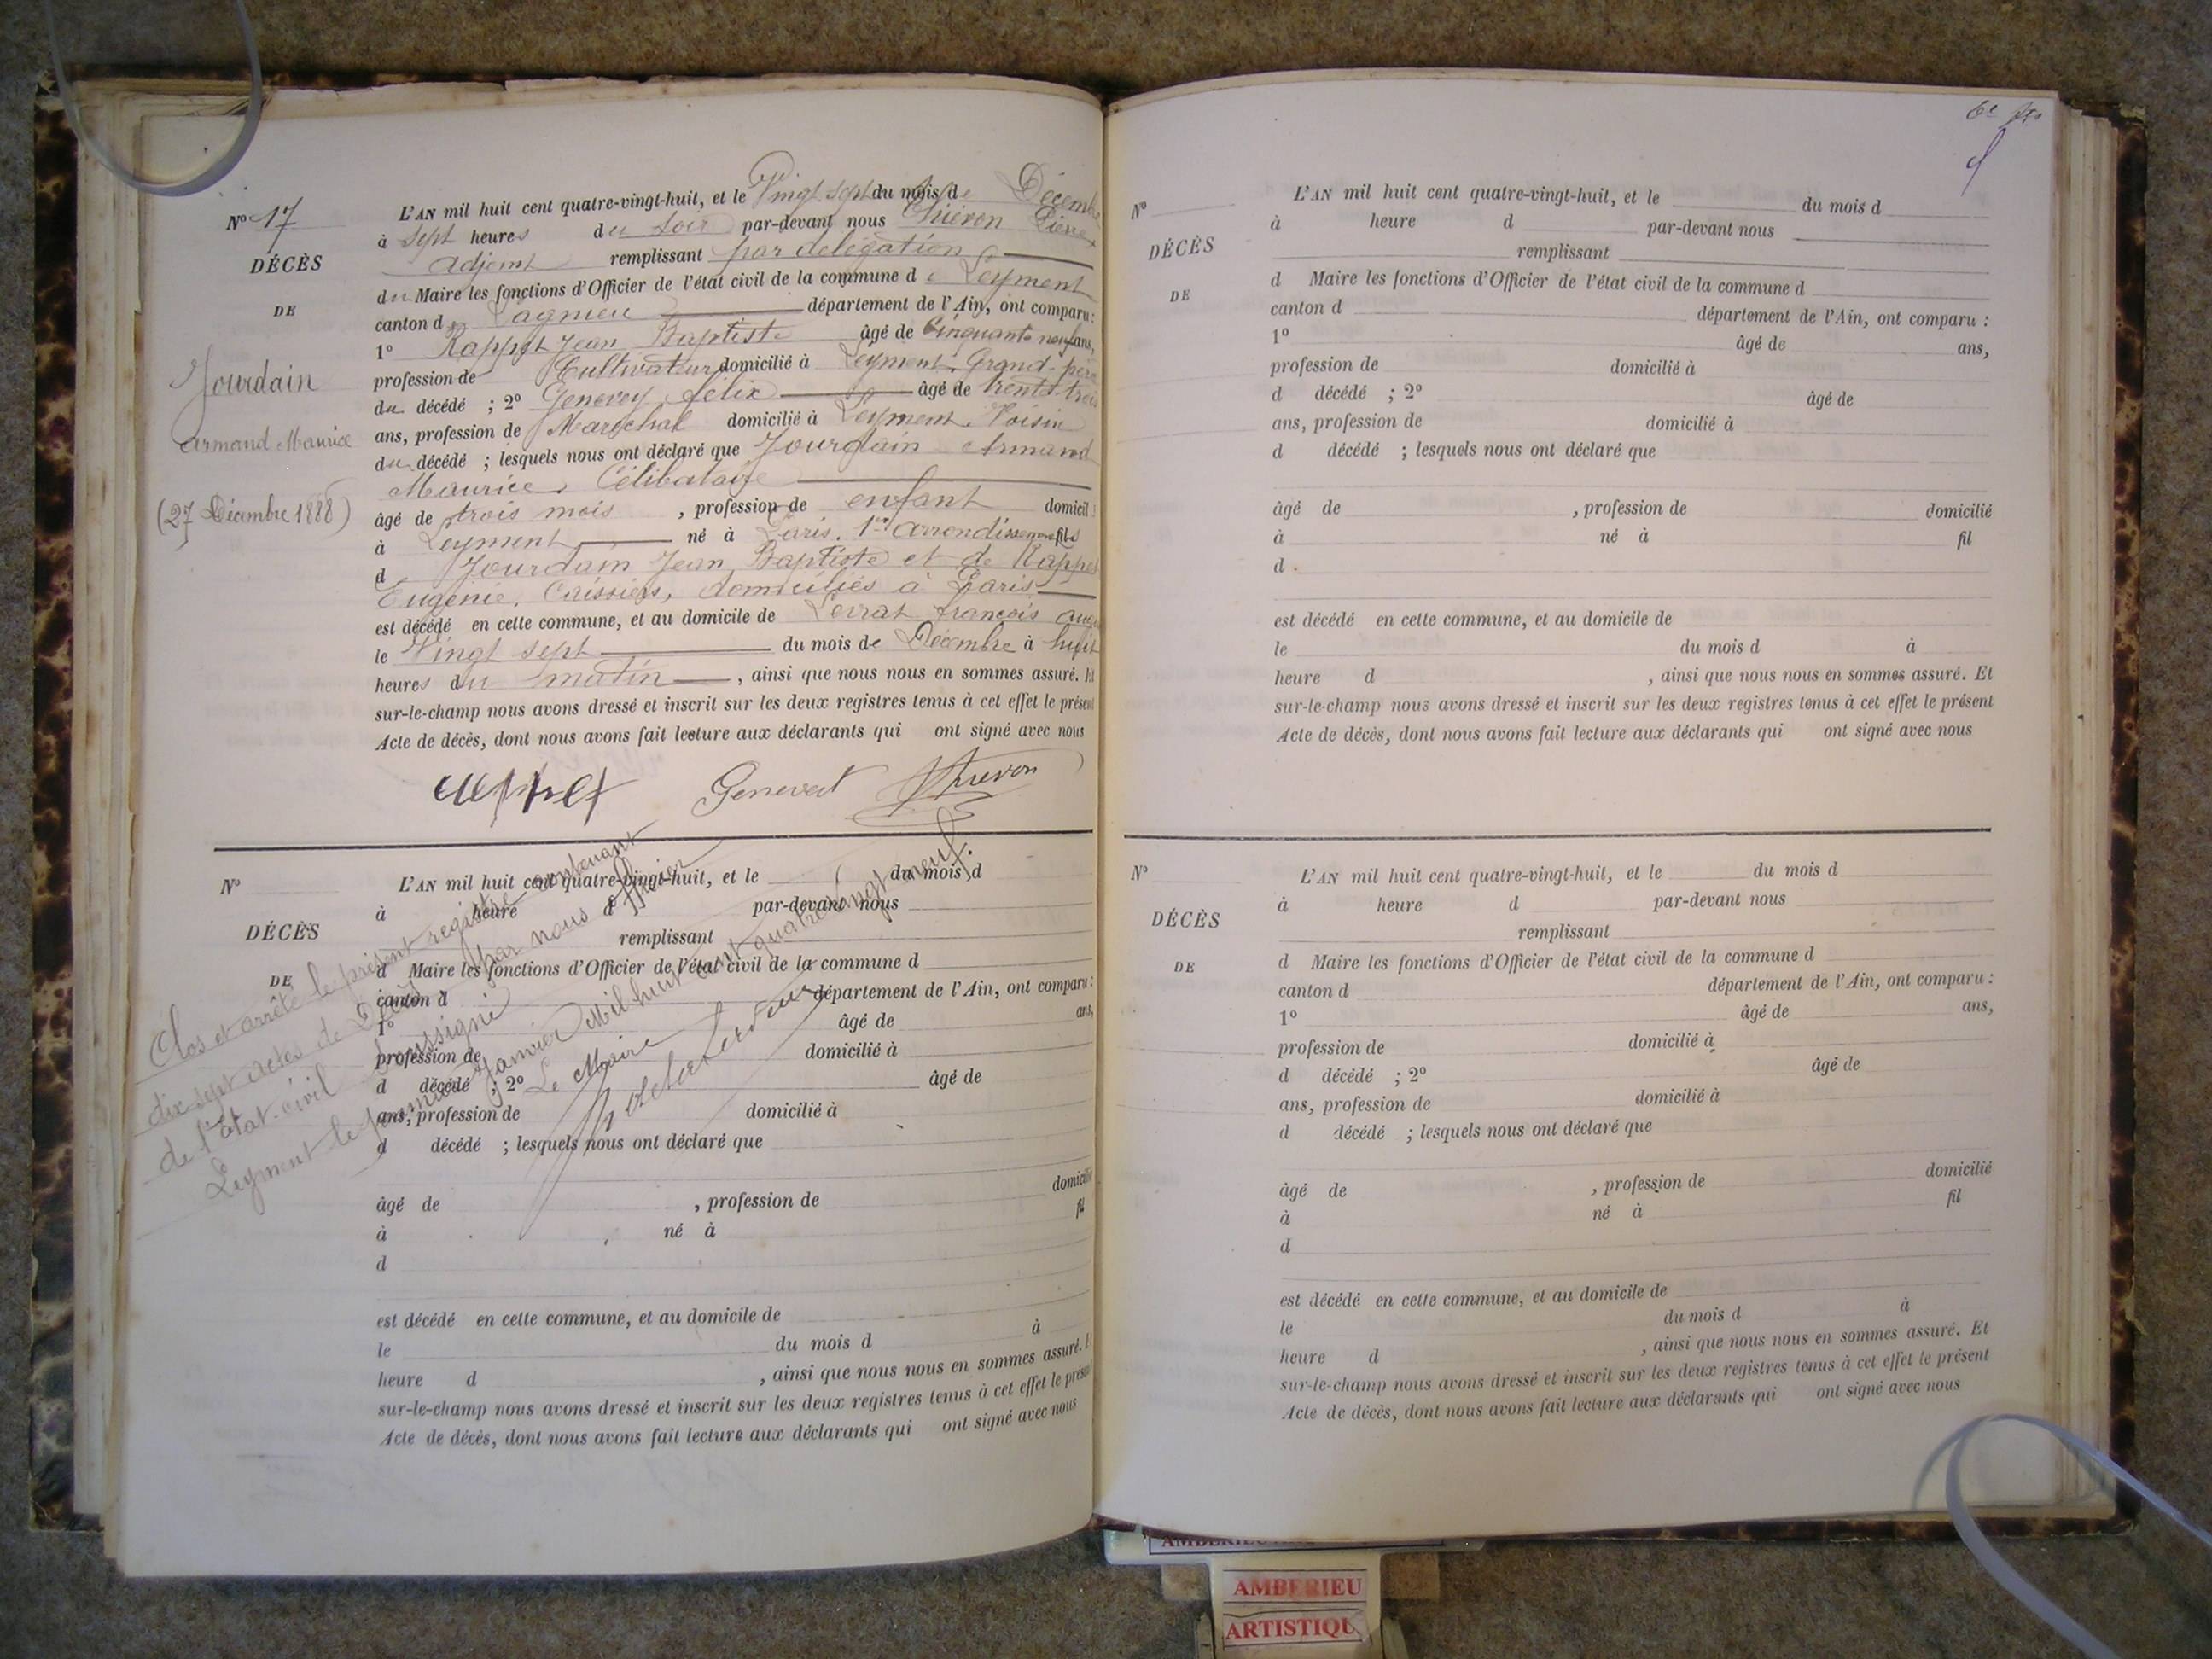 N° 17
DÉCÈS
DE
Jourdain
Armand Maurice
(27 Décembre 1888)
L'AN mil huit cent quatre-vingt-huit, et le Vingt sept du mois de Décembre
à sept heures du soir par-devant nous Thiévon Pierre
adjoint remplissant par délégation
du Maire les fonctions d'Officier de l'état civil de la commune de Leyment
canton de Lagnieu département de l'Ain, ont comparu :
1° Rappet Jean Baptiste âgé de Cinquante neuf ans,
profession de Cultivateur domicilié à Leyment, Grand-père
du décédé ; 2° Genevey félix âgé de trente-trois
ans, profession de Maréchal domicilié à Leyment, Voisin
du décédé ; lesquels nous ont déclaré que Jourdain Armand
Maurice, Célibataire
âgé de trois mois , profession de enfant domicil
à Leyment né à Paris. 1er arrondissement fils
d Jourdain Jean Baptiste et de Rappet
Eugénie, Caissiers, domiciliés à Paris
est décédé en cette commune, et au domicile de Levrat françois
le Vingt sept du mois de Décembre à huit
heures du matin , ainsi que nous nous en sommes assuré. Et
sur-le-champ nous avons dressé et inscrit sur les deux registres tenus à cet effet le présent
Acte de décès, dont nous avons fait lecture aux déclarants qui ont signé avec nous
Genevet Thievon
N°
DÉCÈS
DE
L'AN mil huit cent quatre-vingt-huit, et le du mois d
à heure d par-devant nous
remplissant
d Maire les fonctions d'Officier de l'état civil de la commune d
canton d département de l'Ain, ont comparu :
1° âgé de ans,
profession de domicilié à
d décédé ; 2° âgé de
ans, profession de domicilié à
d décédé ; lesquels nous ont déclaré que
âgé de , profession de domicilié
à né à fil
d
est décédé en cette commune, et au domicile de
le du mois d à
heure d , ainsi que nous nous en sommes assuré. Et
sur-le-champ nous avons dressé et inscrit sur les deux registres tenus à cet effet le présent
Acte de décès, dont nous avons fait lecture aux déclarants qui ont signé avec nous
Clos et arrêté le présent registre contenant
dix sept actes de Décès par nous officier
de l'Etat-civil soussigné
Leyment le premier Janvier Mil huit cent quatre vingt neuf.
Le Maire
N°
DÉCÈS
DE
L'AN mil huit cent quatre-vingt-huit, et le du mois d
à heure d par-devant nous
remplissant
d Maire les fonctions d'Officier de l'état civil de la commune d
canton d département de l'Ain, ont comparu :
1° âgé de ans,
profession de domicilié à
d décédé ; 2° âgé de
ans, profession de domicilié à
d décédé ; lesquels nous ont déclaré que
âgé de , profession de domicilié
à né à fil
d
est décédé en cette commune, et au domicile de
le du mois d à
heure d , ainsi que nous nous en sommes assuré. Et
sur-le-champ nous avons dressé et inscrit sur les deux registres tenus à cet effet le présent
Acte de décès, dont nous avons fait lecture aux déclarants qui ont signé avec nous
N°
DÉCÈS
DE
L'AN mil huit cent quatre-vingt-huit, et le du mois d
à heure d par-devant nous
remplissant
d Maire les fonctions d'Officier de l'état civil de la commune d
canton d département de l'Ain, ont comparu :
1° âgé de ans,
profession de domicilié à
d décédé ; 2° âgé de
ans, profession de domicilié à
d décédé ; lesquels nous ont déclaré que
âgé de , profession de domicilié
à né à fil
d
est décédé en cette commune, et au domicile de
le du mois d à
heure d , ainsi que nous nous en sommes assuré. Et
sur-le-champ nous avons dressé et inscrit sur les deux registres tenus à cet effet le présent
Acte de décès, dont nous avons fait lecture aux déclarants qui ont signé avec nous
AMBERIEU
ARTISTIQU